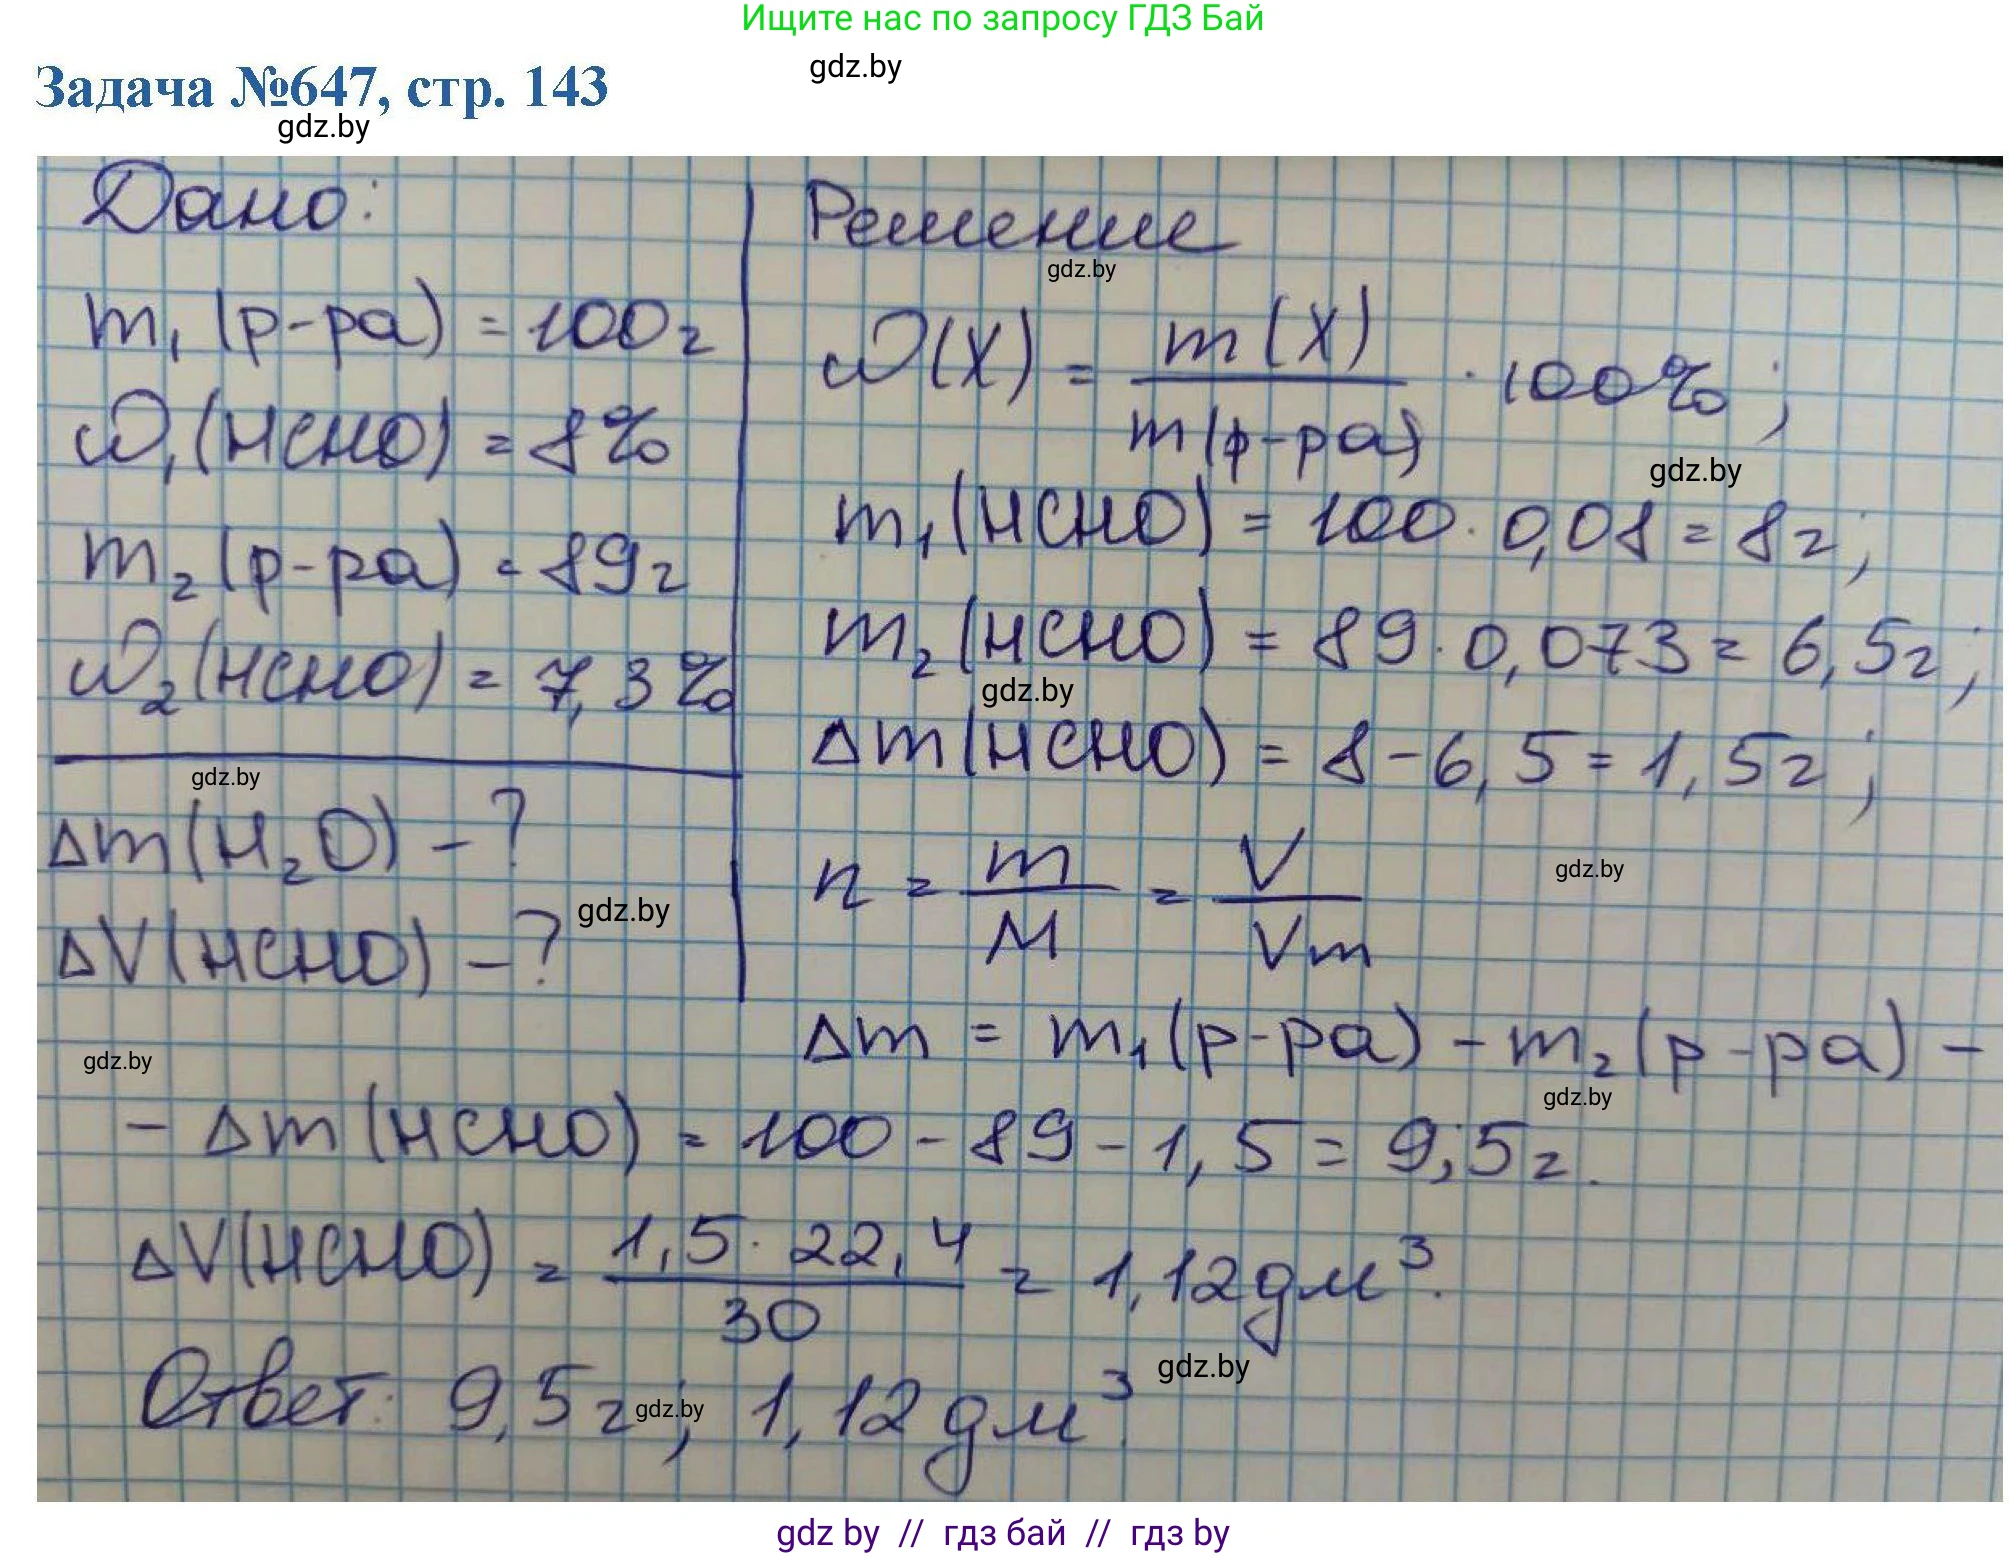 Ищите нас по запросу ГДЗ Бай
gdz.by
Задача №647, стр. 143
gdz.by
Дано:
m₁(р-ра) = 100г
ω₁(HCHO) = 8%
m₂(р-ра) = 89г
ω₂(HCHO) = 7,3%
gdz.by
Δm(H₂O) - ?
gdz.by
ΔV(HCHO) - ?
gdz.by
Решение
gdz.by
ω(X) = m(X) / m(р-ра) · 100%;
gdz.by
m₁(HCHO) = 100 · 0,08 = 8г;
m₂(HCHO) = 89 · 0,073 = 6,5г;
gdz.by
Δm(HCHO) = 8 - 6,5 = 1,5г;
n = m / M = V / Vm
gdz.by
Δm = m₁(р-ра) - m₂(р-ра) -
gdz.by
- Δm(HCHO) = 100 - 89 - 1,5 = 9,5г.
ΔV(HCHO) = 1,5 · 22,4 / 30 = 1,12дм³.
gdz.by
Ответ: 9,5г; 1,12дм³.
gdz.by
gdz by // гдз бай // гдз by